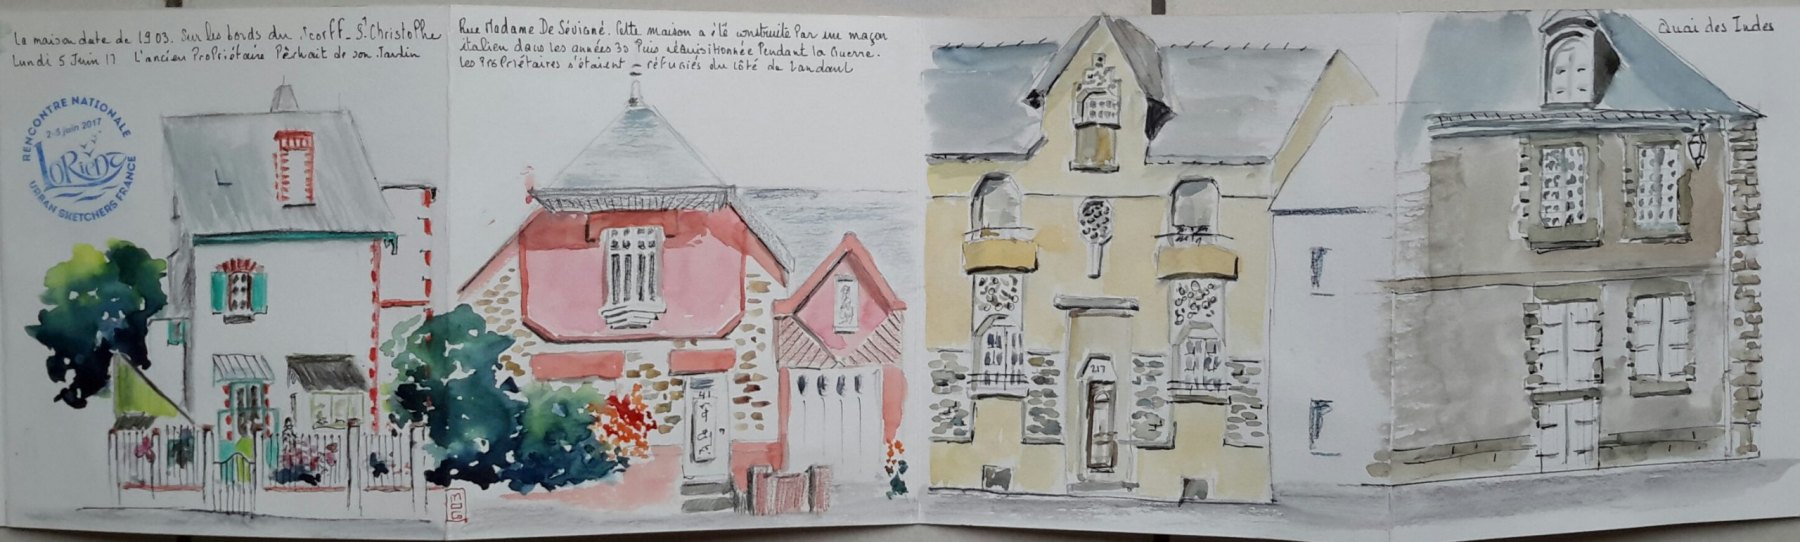 La maison date de 1903. Sur les bords du Scorff_ St Christophe
Lundi 5 Juin 17 L'ancien Propriétaire Pêchait de son Jardin
RENCONTRE NATIONALE
2-5 juin 2017
LORIENT
URBAN SKETCHERS FRANCE
Rue Madame De Sévigné. Cette maison a été construite Par un maçon
italien dans les années 30 Puis réquisitionnée Pendant la Guerre.
Les Propriétaires s'étaient réfugiés du côté de Landaul
41
217
Quai des Indes